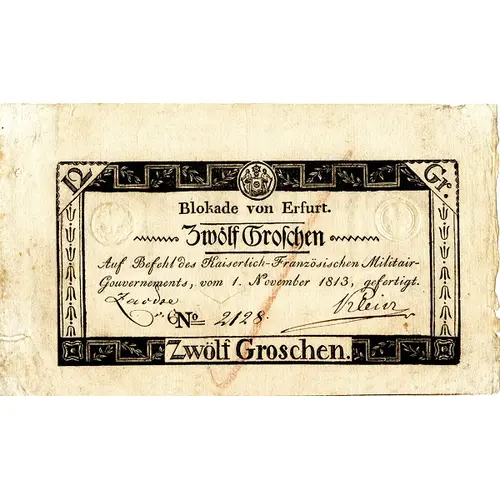 12
Gr.
Blokade von Erfurt.
Zwölf Groschen
Auf Befehl des Kaiserlich-Französischen Militair-
Gouvernements, vom 1. November 1813, gefertigt.
No 2128.
Klein
Zwölf Groschen.